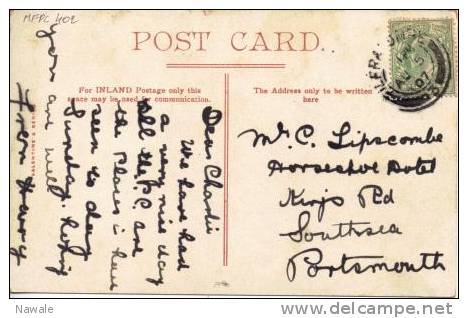 MFPC 402
POST CARD.
For INLAND Postage only this
space may be used for communication.
The Address only to be written
here
Dear Charlie
We have had
a very nice day
all the P.C. are
the Places i have
seen to day
Sunday. hoping
you are well
From Harry
Mr. C. Lipscombe
Horseshoe Hotel
Kings Rd
Southsea
Portsmouth
07
Nawale
www.delcampe.net